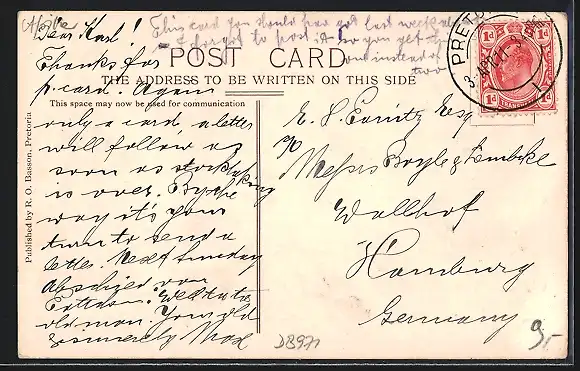 This card you should have got last week already
I forgot to post it. So you get
one instead of
two
POST CARD
THE ADDRESS TO BE WRITTEN ON THIS SIDE
This space may now be used for communication
Dear Karl!
Thanks for
p. card. Again
only a card, a letter
will follow as
soon as stocktaking
is over. By the
way it's your
turn to send a
letter. Next Tuesday
Abschied von
old man. Your old
sincerely Max
Published by R. O. Basson, Pretoria
E. S. Esq
c/o
Messrs Boyle &
Wallhof
Hamburg
Germany
PRET
3 APR 11
1d 1d
1d TRANSVAAL 1d
DB971
9,-